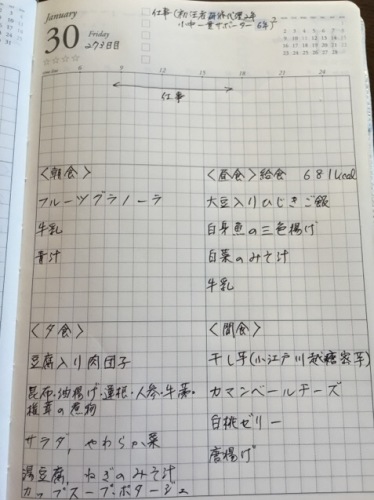 January
30
Friday
273日目
仕事
6 9 12 15 18 21 24
仕事
<朝食>
フルーツグラノーラ
牛乳
青汁
<昼食>給食 681kcal
大豆入りひじきご飯
白身魚の三色揚げ
白菜のみそ汁
牛乳
<夕食>
豆腐入り肉団子
昆布・油揚げ・蓮根・人参・牛蒡・
椎茸の煮物
サラダ、やわらか菜
湯豆腐、ねぎのみそ汁
カップスープ・ポタージュ
<間食>
干し芋(小江戸川越
カマンベールチーズ
白桃ゼリー
唐揚げ